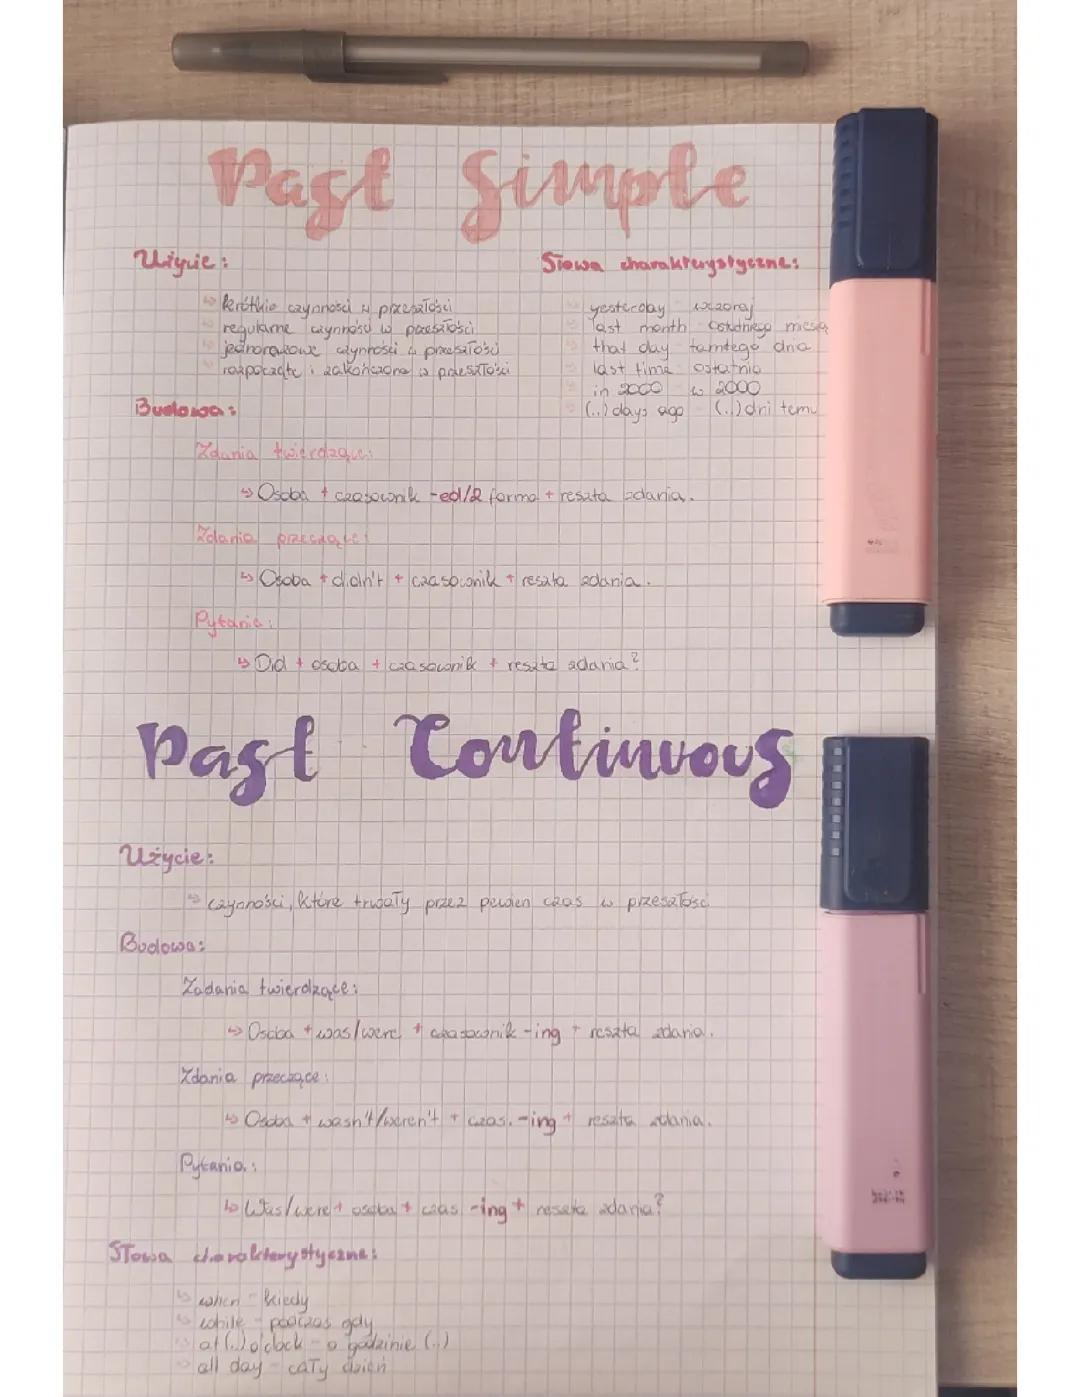 Past Simple
Użycie:
krótkie czynności w przeszłości
regularne czynności w przeszłości
jednorazowe czynności w przeszłości
rozpoczęte i zakończone w przeszłości
Słowa charakterystyczne:
yesterday - wczoraj
last month - ostatniego miesią
that day - tamtego dnia
last time - ostatnio
in 2000 - w 2000
(..) days ago - (..) dni temu
Budowa:
Zdania twierdzące:
↳ Osoba + czasownik -ed/2 forma + reszta zdania.
Zdania przeczące:
↳ Osoba + didn't + czasownik + reszta zdania.
Pytania:
↳ Did + osoba + czasownik + reszta zdania?
Past Continuous
Użycie:
↳ czynności, które trwały przez pewien czas w przeszłości
Budowa:
Zadania twierdzące:
↳ Osoba + was/were + czasownik -ing + reszta zdania.
Zdania przeczące:
↳ Osoba + wasn't/weren't + czas. -ing + reszta zdania.
Pytania:
↳ Was/were + osoba + czas -ing + reszta zdania?
Słowa charakterystyczne:
↳ when - kiedy
↳ while - podczas gdy
↳ at (..) o'clock - o godzinie (..)
↳ all day - cały dzień